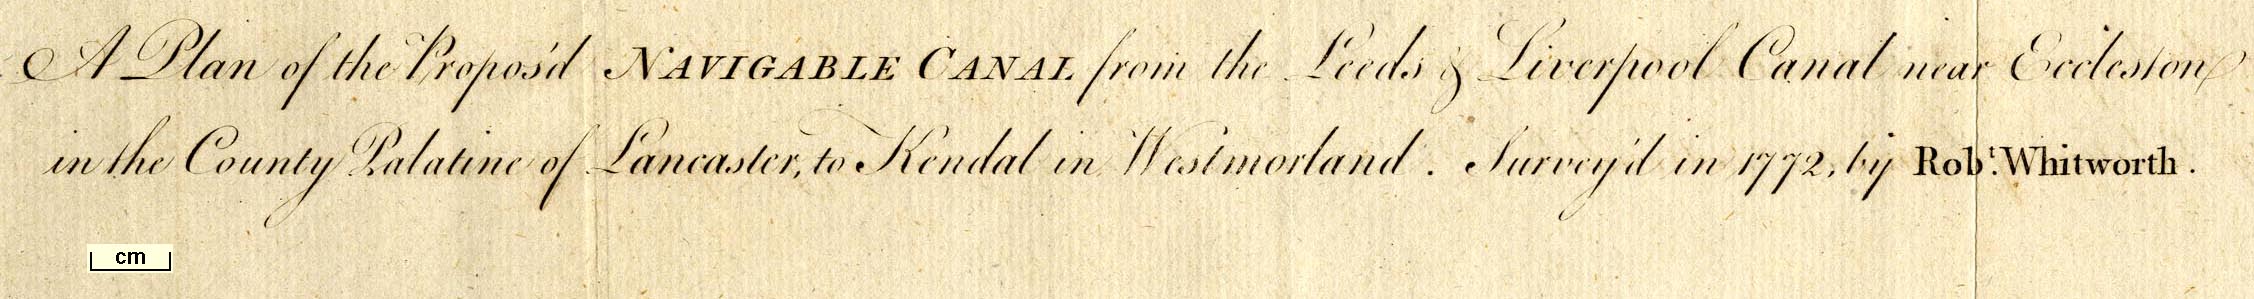 A Plan of the Propos'd NAVIGABLE CANAL from the Leeds & Liverpool Canal near Eccleston
in the County Palatine of Lancaster, to Kendal in Westmorland. Survey'd in 1772, by Robt. Whitworth.
cm